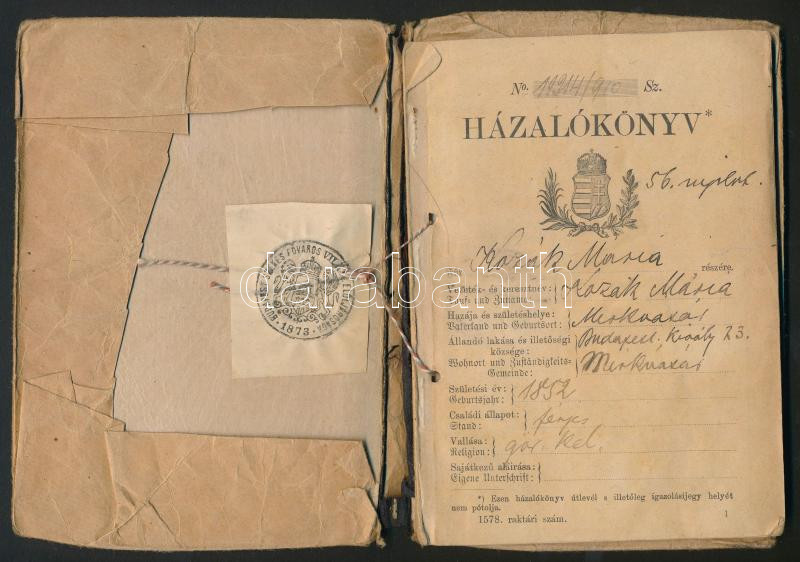 BUDAPEST SZÉKES FŐVÁROS VII. KER. ELÖLJÁRÓSÁGA
1873
No. 11914/910 Sz.
HÁZALÓKÖNYV*
56.
Kozák Mária részére.
Vezeték- és keresztnév: Kozák Mária
Vor- und Zuname:
Hazája és születéshelye: Merkvasár
Vaterland und Geburtsort:
Állandó lakása és illetőségi Budapest. Király 23.
községe:
Wohnort und Zuständigkeits- Merkvasár
Gemeinde:
Születési év: 1852
Geburtsjahr:
Családi állapot: férjes
Stand:
Vallása: gör. kel.
Religion:
Sajátkezű aláírása:
Eigene Unterschrift:
*) Ezen házalókönyv útlevél s illetőleg igazolásijegy helyét
nem pótolja.
1578. raktári szám. 1
darabanth